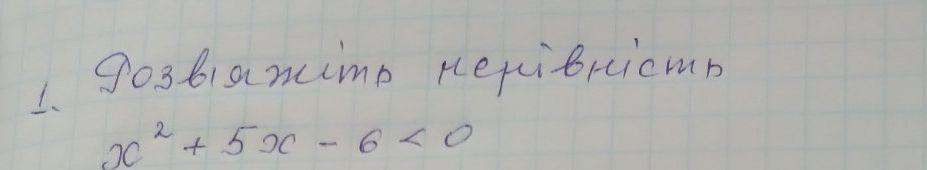 1. Розвіяжіть нерівність
x² + 5x - 6 < 0